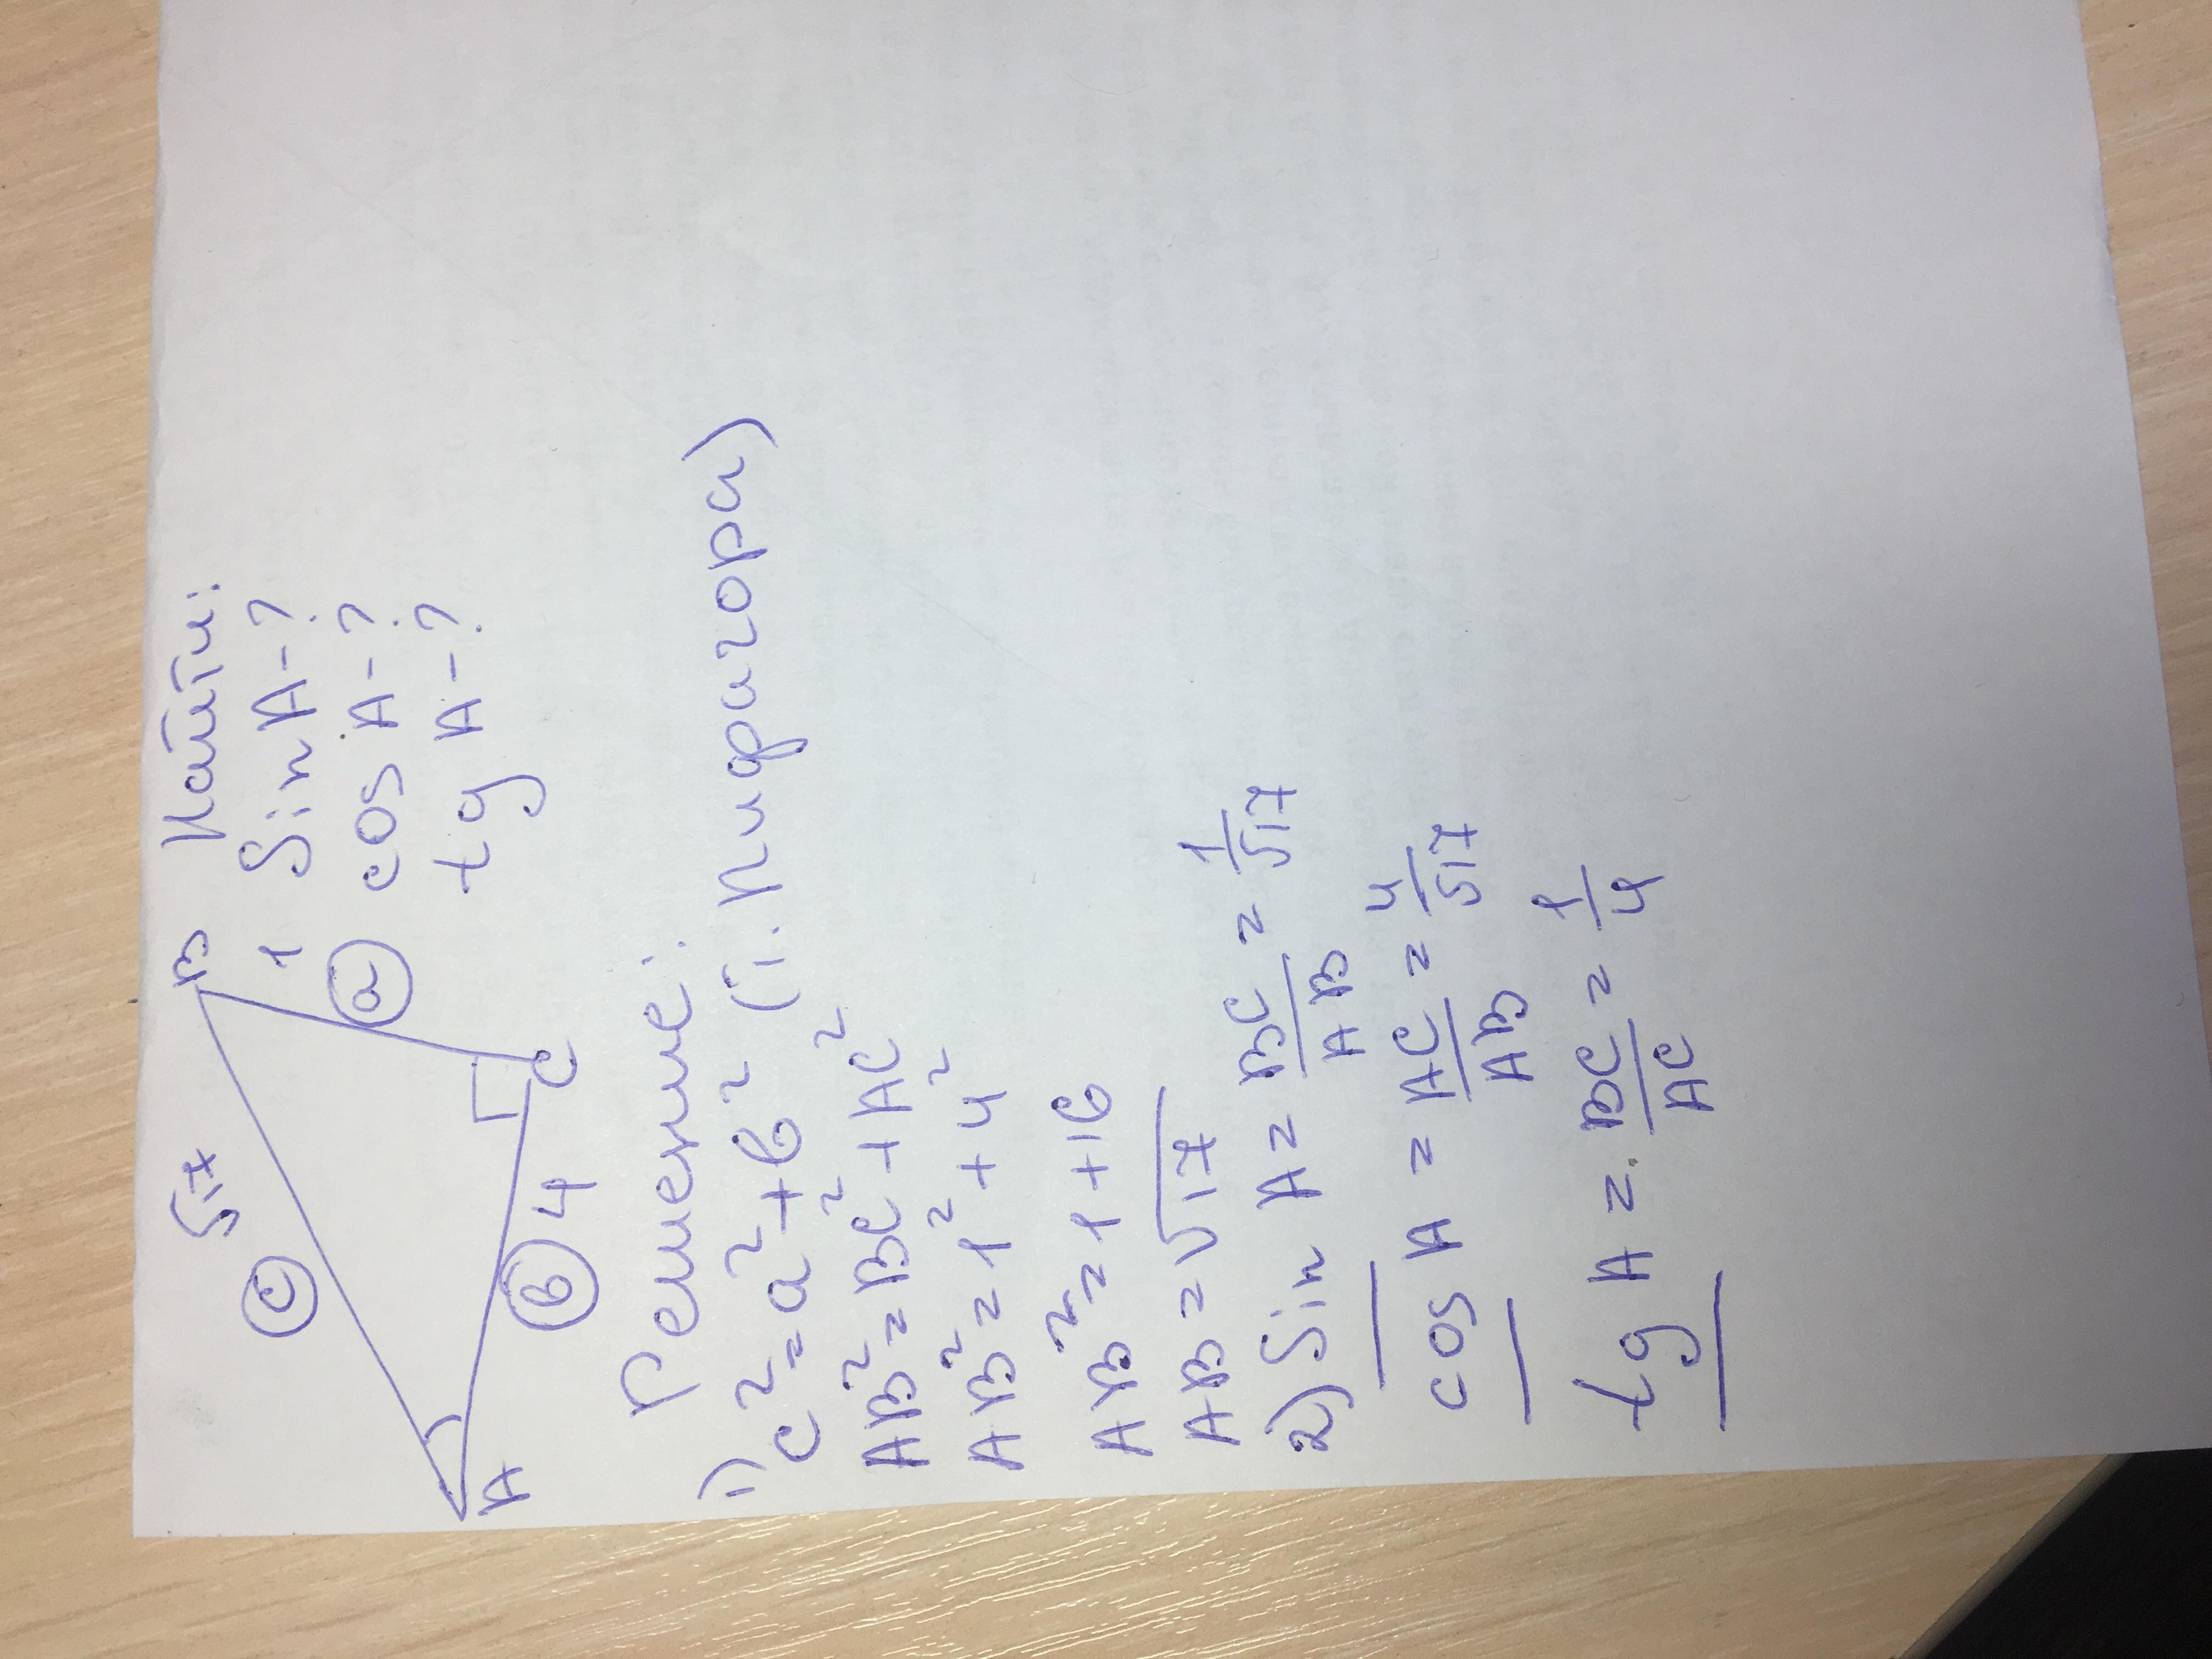 B Найти:
c √17 1 Sin A - ?
a cos A - ?
tg A - ?
A b 4 C
Решение:
1) c² = a² + b² (т. Пифагора)
AB² = BC² + AC²
AB² = 1² + 4²
AB² = 1 + 16
AB = √17
2) Sin A = BC/AB = 1/√17
cos A = AC/AB = 4/√17
tg A = BC/AC = 1/4